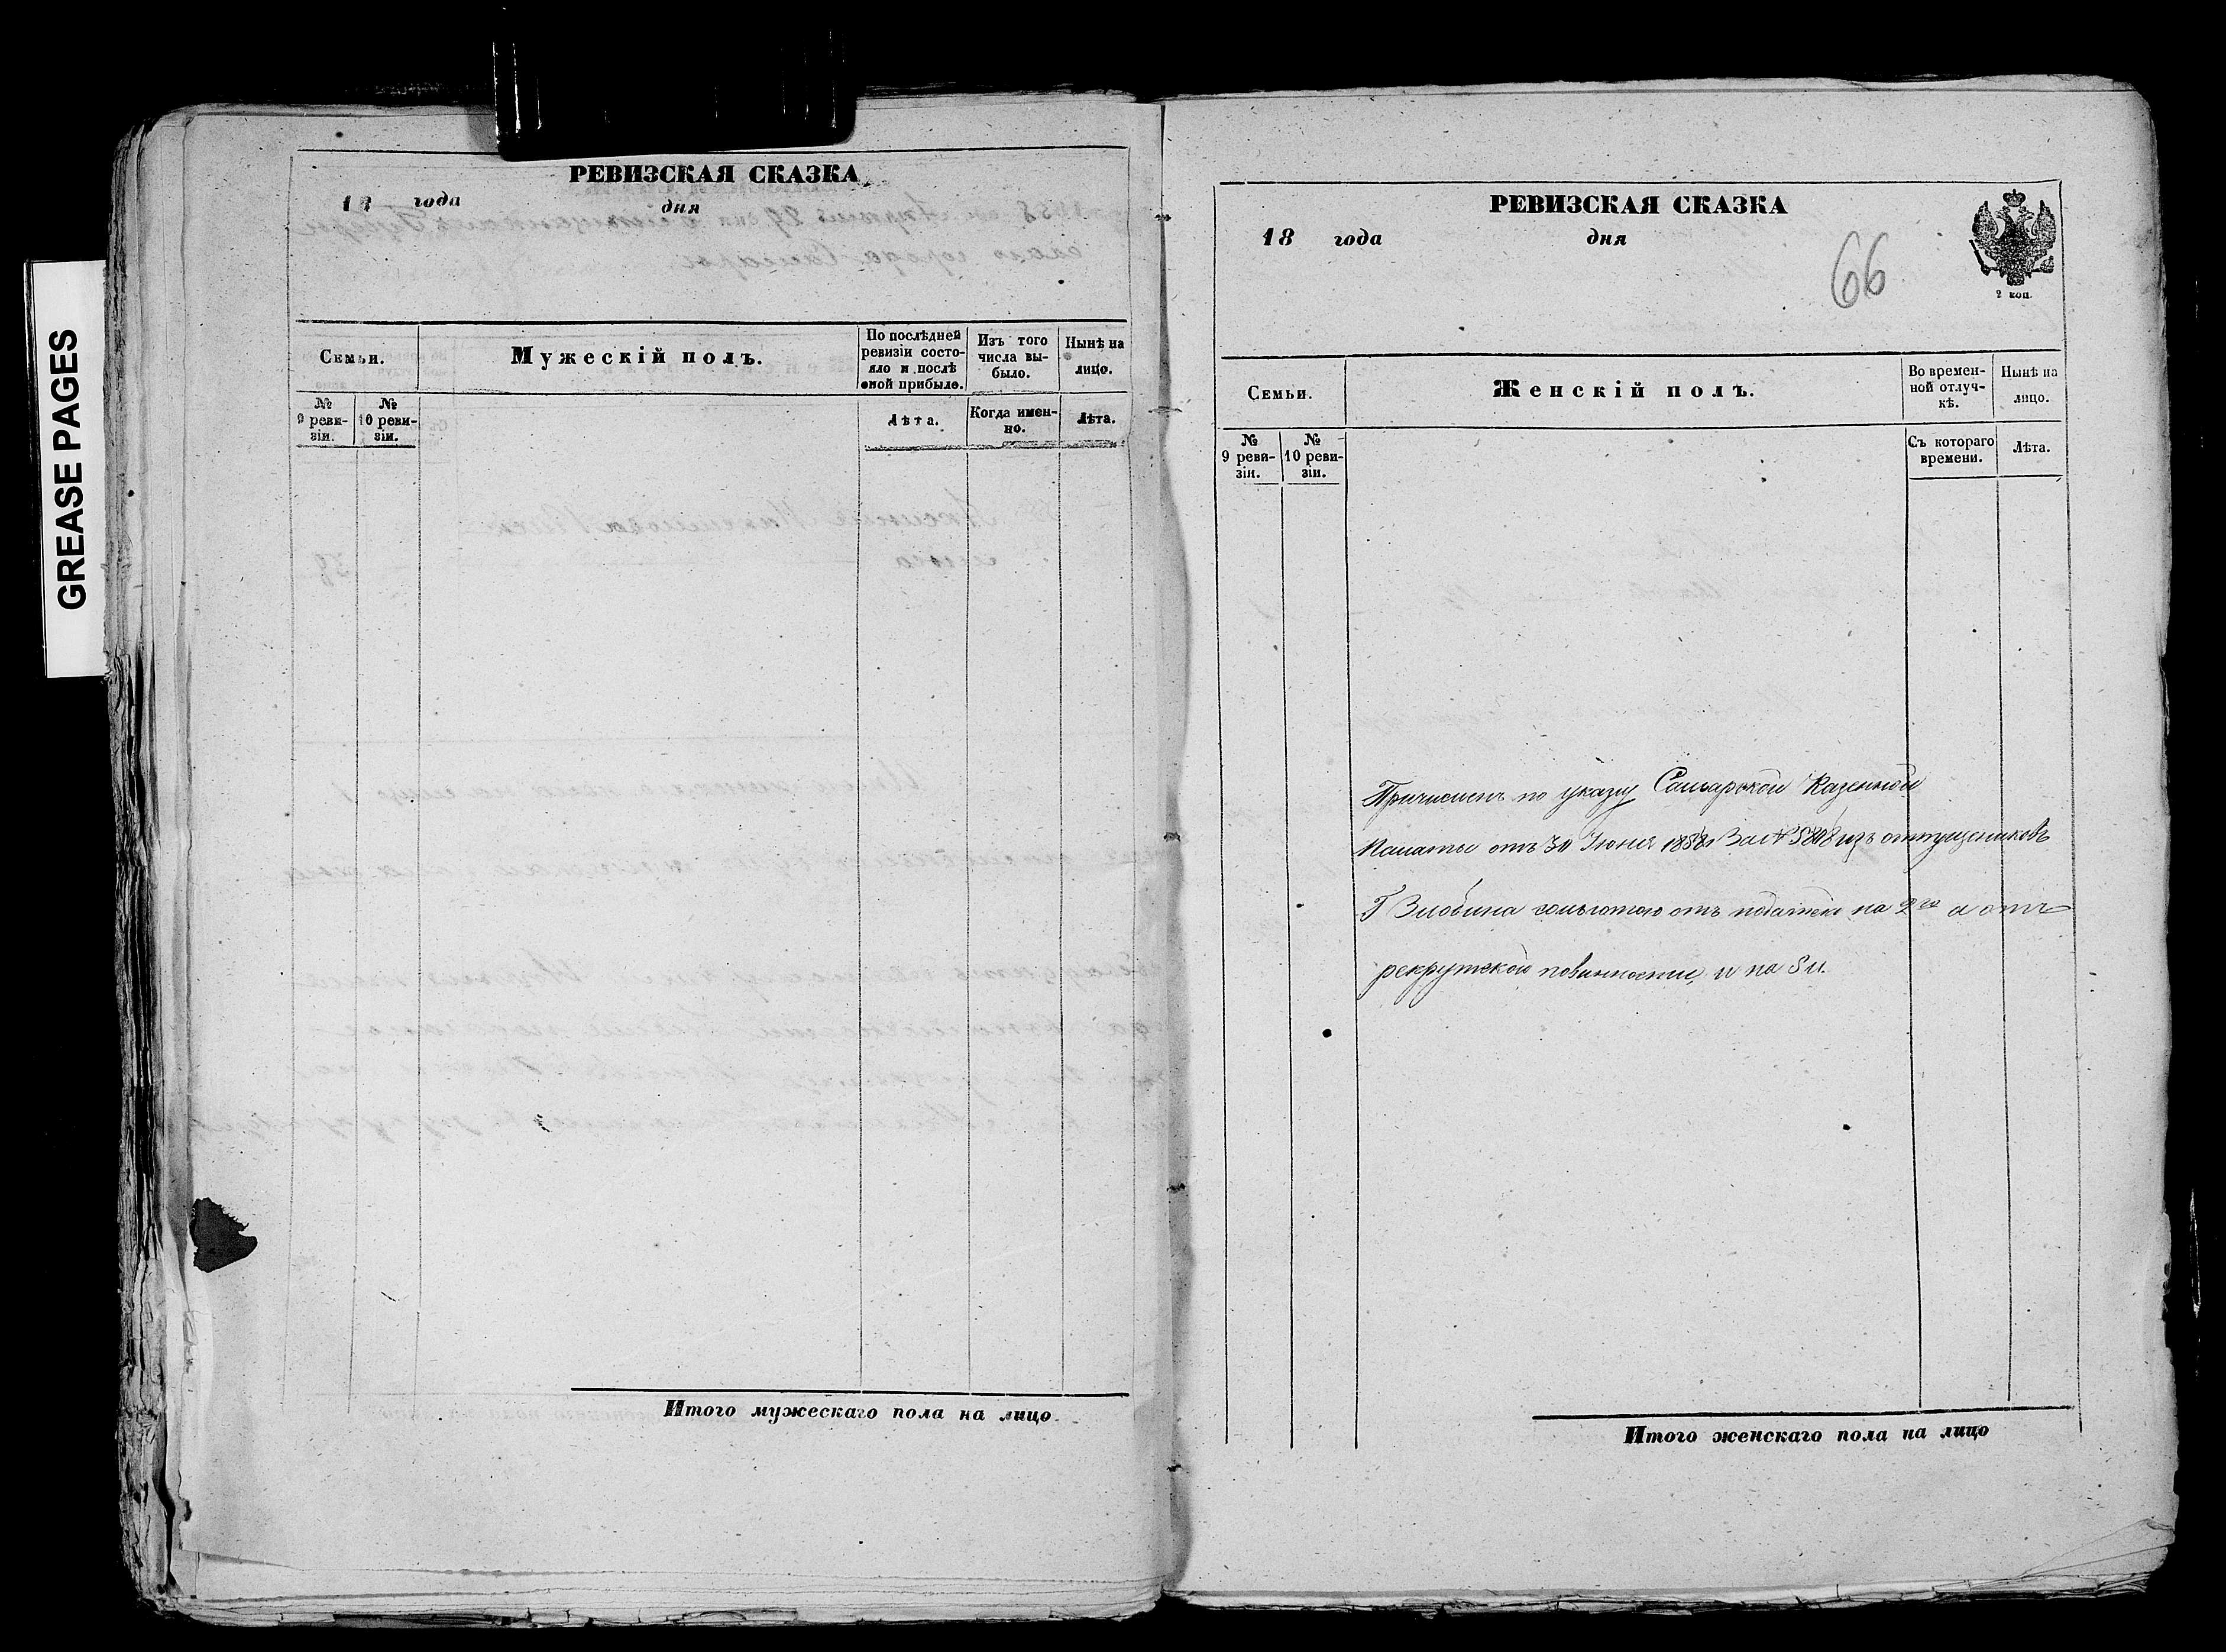 GREASE PAGES
РЕВИЗСКАЯ СКАЗКА
18 года дня
Семьи.
Мужескій полъ.
По послѣдней ревизіи состояло и послѣ оной прибыло.
Изъ того числа выбыло.
Нынѣ на лицо.
№ 9 ревизіи.
№ 10 ревизіи.
Лѣта.
Когда именно.
Лѣта.
Итого мужескаго пола на лицо
РЕВИЗСКАЯ СКАЗКА
18 года дня
66
2 коп.
Семьи.
Женскій полъ.
Во временной отлучкѣ.
Нынѣ на лицо.
№ 9 ревизіи.
№ 10 ревизіи.
Съ котораго времени.
Лѣта.
Причисленъ по указу Самарской Казенной
Палаты отъ 30 Іюня 1858 За № изъ отпущениковъ
Г Злобина сольготою отъ податей на а отъ
рекрутской повинности, и на
Итого женскаго пола на лицо